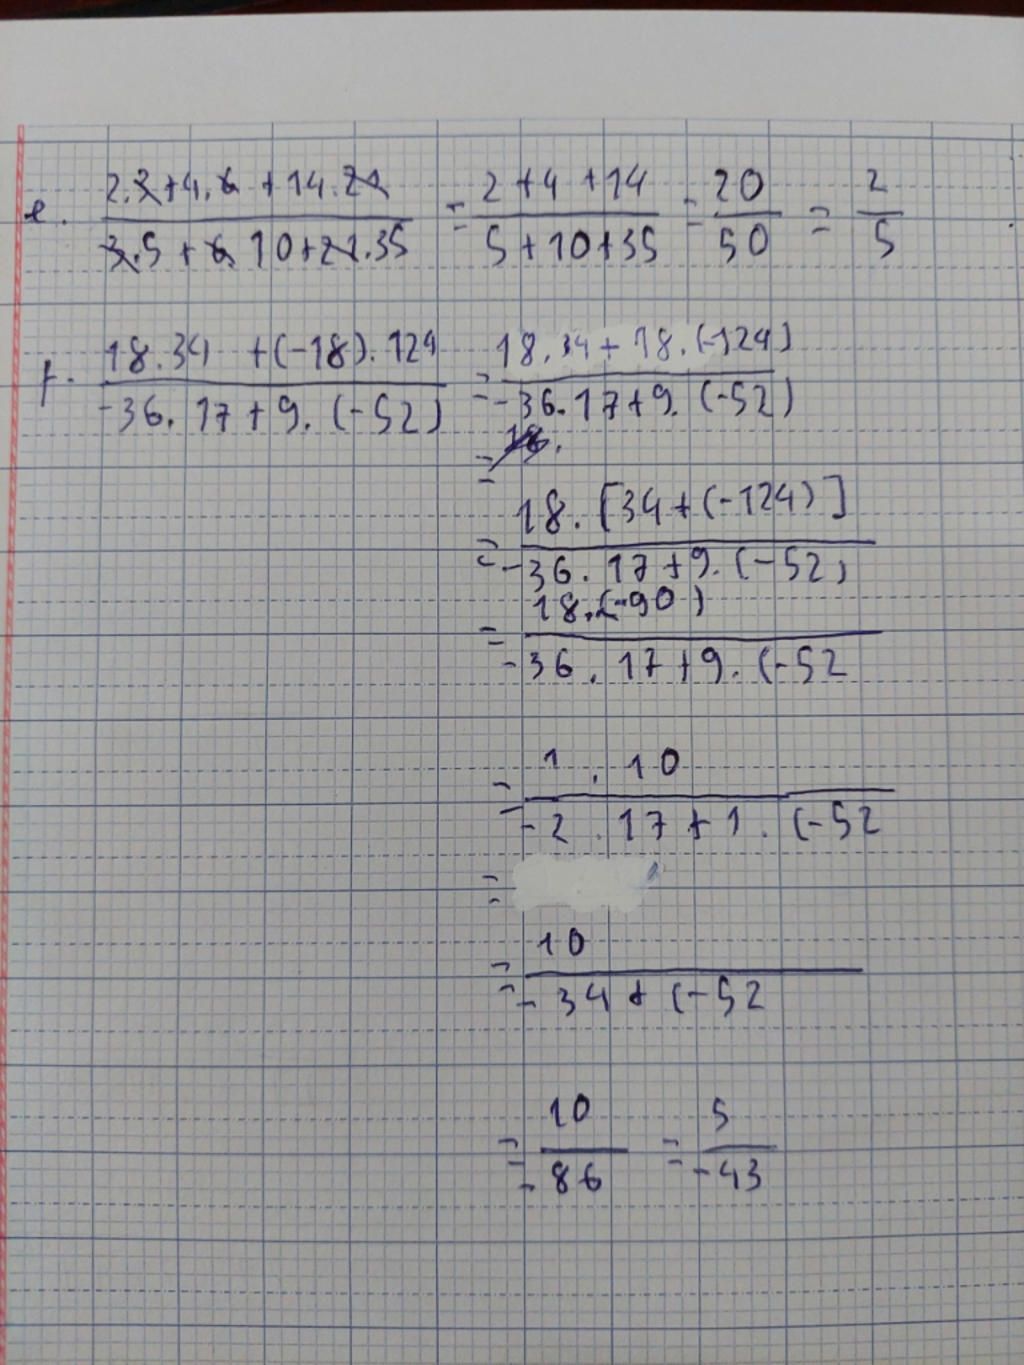 e. 2.3+4.6+14.21 / 3.5+6 10+21.35 = 2+4+14 / 5+10+35 = 20 / 50 = 2 / 5
f. 18.34 +(-18).124 / -36.17+9.(-52) = 18.34+18.(-124) / -36.17+9.(-52)
= 18.
= 18.[34+(-124)] / -36.17+9.(-52)
= 18.(-90) / -36.17+9.(-52
= 1.10 / -2.17+1.(-52
=
= 10 / -34+(-52
= 10 / -86 = 5 / -43